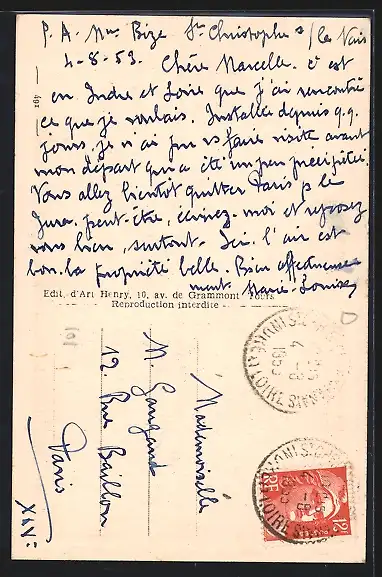 P. A. Mme Bize St Christophe s/le Nais
4-8-53. Chère Marcelle. c'est
en Indre et Loire que j'ai rencontré
ce que je voulais. Installée depuis q.q.
jours, je n'ai pu vs faire visite avant
mon départ qui a été un peu précipité.
Vous allez bientôt quitter Paris p le
Jura, peut-être, écrivez-moi et reposez
vous bien, surtout. Ici, l'air est
bon, la propriété belle. Bien affectueuse
ment Marie-Louise
491
Edit. d'Art Henry, 10, av. de Grammont Tours
Reproduction interdite
Mademoiselle
M.
12 Rue Baillou
Paris
XIV:
4 -8
1953
12F